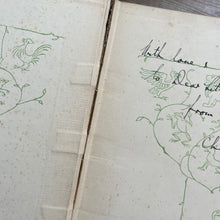 With love &
To Dear
from
Ch